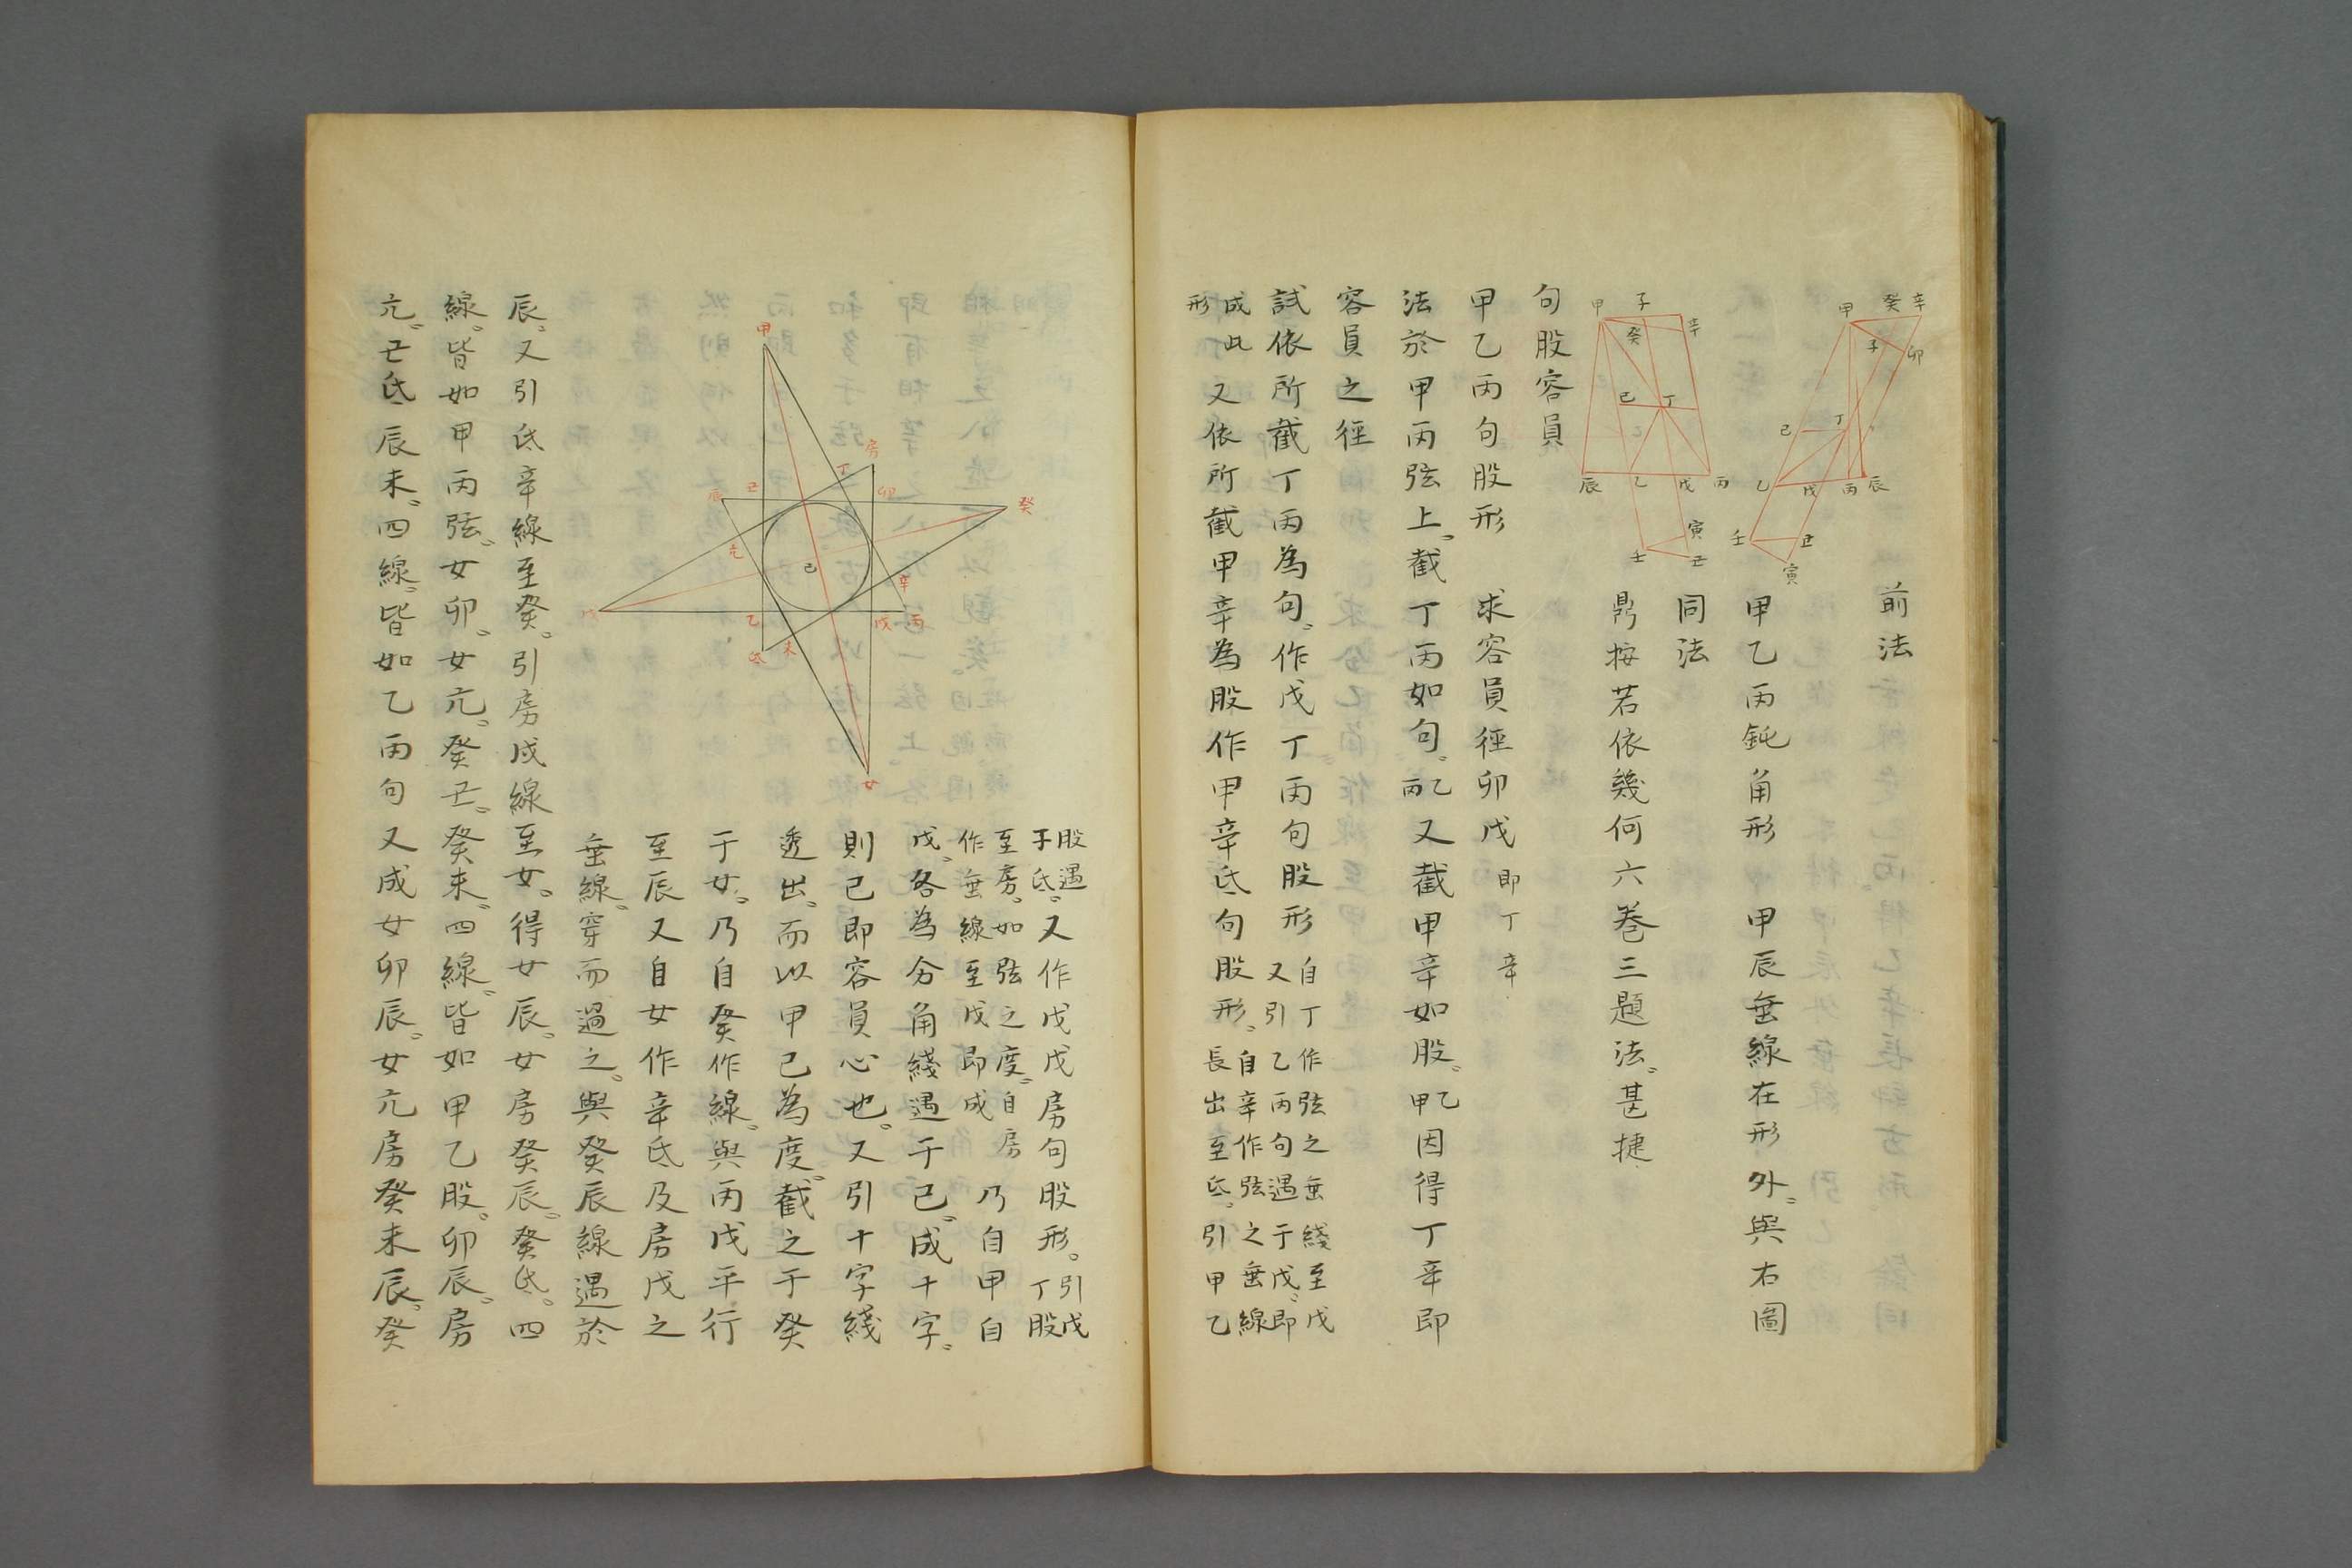 前法
甲乙丙鈍角形　甲辰垂線在形外與右圖
同法
鼎按若依幾何六卷三題法甚捷
句股容員
甲乙丙句股形　求容員徑卯戊即丁辛
法於甲丙弦上截丁丙如句乙丙又截甲辛如股乙甲因得丁辛即
容員之徑
試依所截丁丙為句作戊丁丙句股形自丁作弦之垂綫至戊又引乙丙句遇于戊即
成此形又依所截甲辛為股作甲辛氐句股形自辛作弦之垂線長出至氐引甲乙
股遇于氐又作戊戊房句股形引戊丁股
至房如弦之度自房作垂線至戊即成乃自甲自
戊各為分角綫遇于己成十字
則己即容員心也又引十字綫
透出而以甲己為度截之于癸
于女乃自癸作線與丙戊平行
至辰又自女作辛氐及房戊之
垂線穿而過之與癸辰線遇於
辰又引氐辛線至癸引房戊線至女得女辰女房癸辰癸氐四
線皆如甲丙弦女卯女亢癸丑癸未四線皆如甲乙股卯辰房
亢丑氐辰未四線皆如乙丙句又成女卯辰女亢房癸未辰癸
甲
子
辛
癸
己
丁
辰
乙
戊
丙
壬
寅
丑
甲
癸
辛
子
卯
己
丁
乙
戊
丙
辰
壬
丑
寅
甲
房
丁
辰
丑
卯
癸
亢
己
辛
戊
乙
戊
丙
氐
未
女